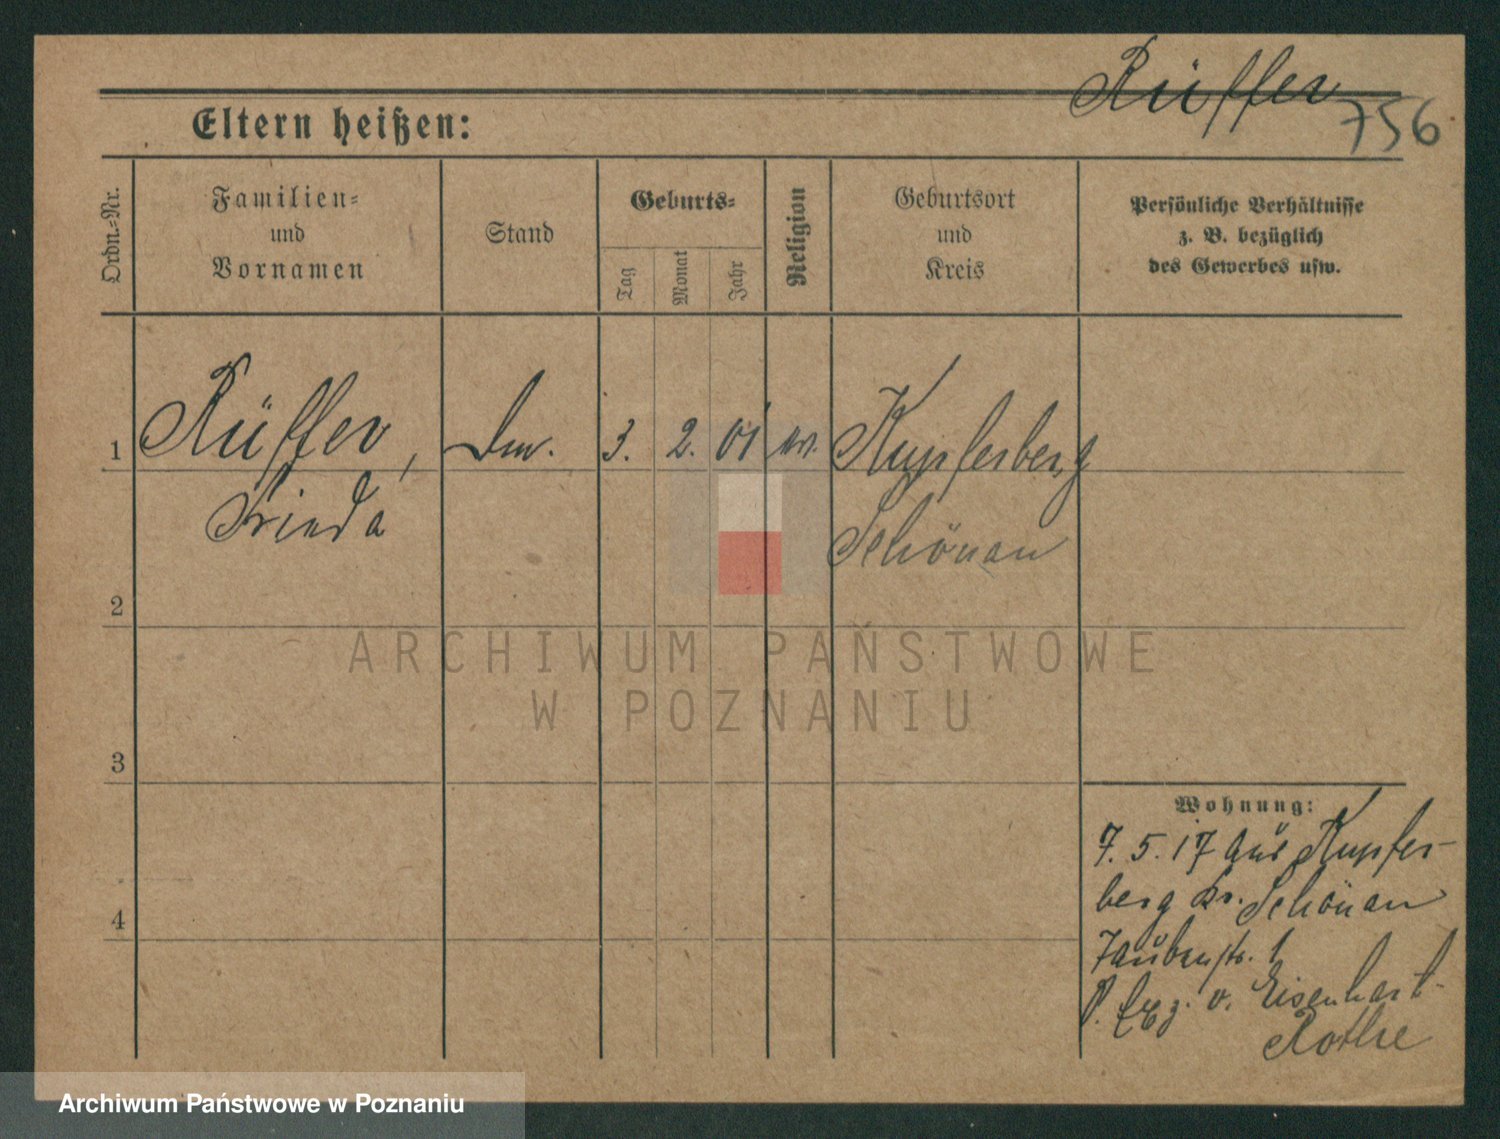 Rüffer
756
Eltern heißen:
Ordn.-Nr.
Familien-
und
Vornamen
Stand
Geburts-
Tag
Monat
Jahr
Religion
Geburtsort
und
Kreis
Persönliche Verhältnisse
z. B. bezüglich
des Gewerbes usw.
1
Rüffer,
3.
2.
01
Kupferberg
Frieda
Schönau
2
ARCHIWUM PAŃSTWOWE
W POZNANIU
3
Wohnung:
7. 5. 17 aus Kupfer-
berg Kr. Schönau
4
Taubenstr. 1
v. Eisenhart-
Rothe
Archiwum Państwowe w Poznaniu